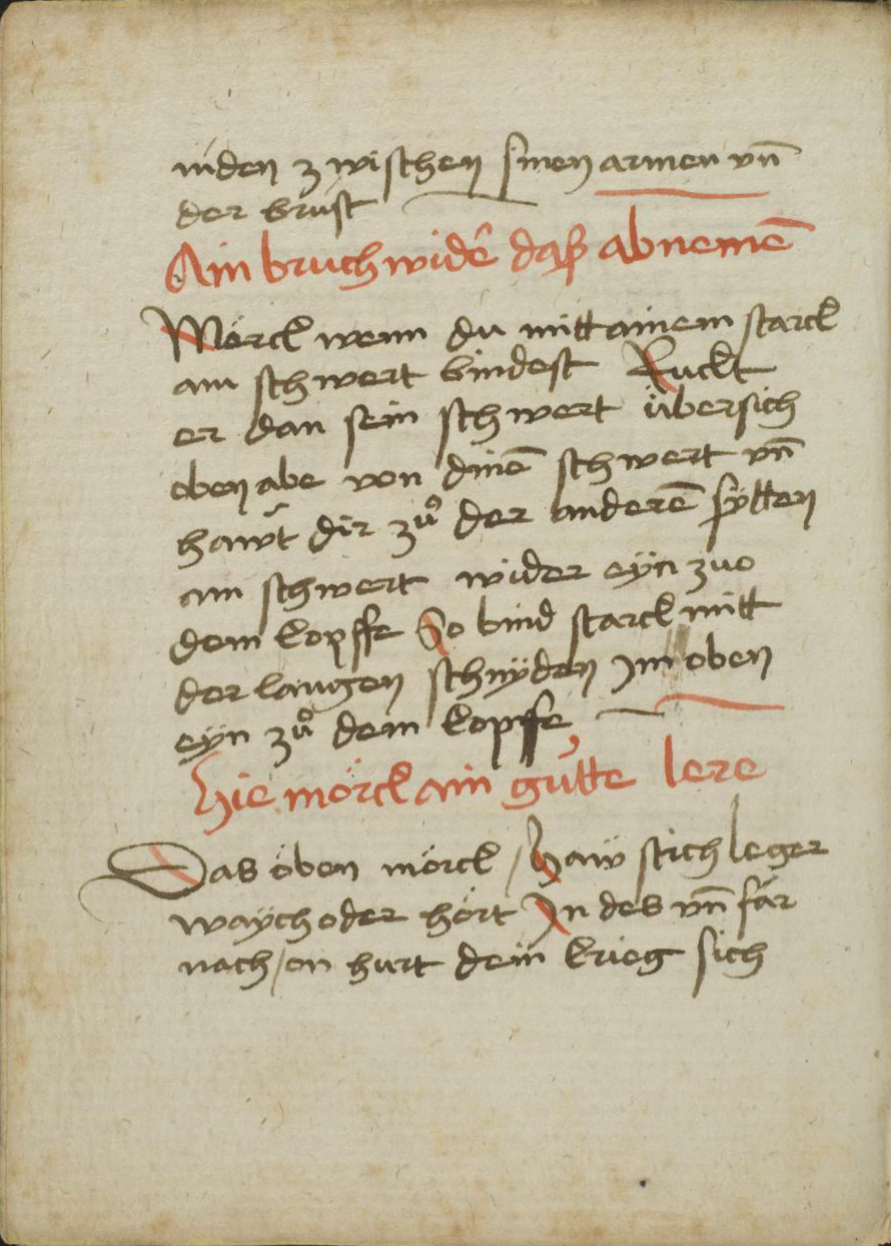 niden zwischen sinen armen vn̄
der brúst
Ain bruch wider̂ daß abnemē
Mörck wenn du mitt ainem starck
am schwert bindest Ruckt
er dan sein schwert übersich
oben abe von dinē schwert vn̄
hawt dir zuͦ der anderē sÿtten
am schwert wider eÿn zuo
dem kopffe So bind starck mitt
der langen schnÿden Im oben
eÿn zuͦ dem kopffe
Hie mörck ain gútte lere
Das eben mörck / Haw stich leger
waÿch oder hört In des vn̄ fár
nach / on hurt dein krieg sich